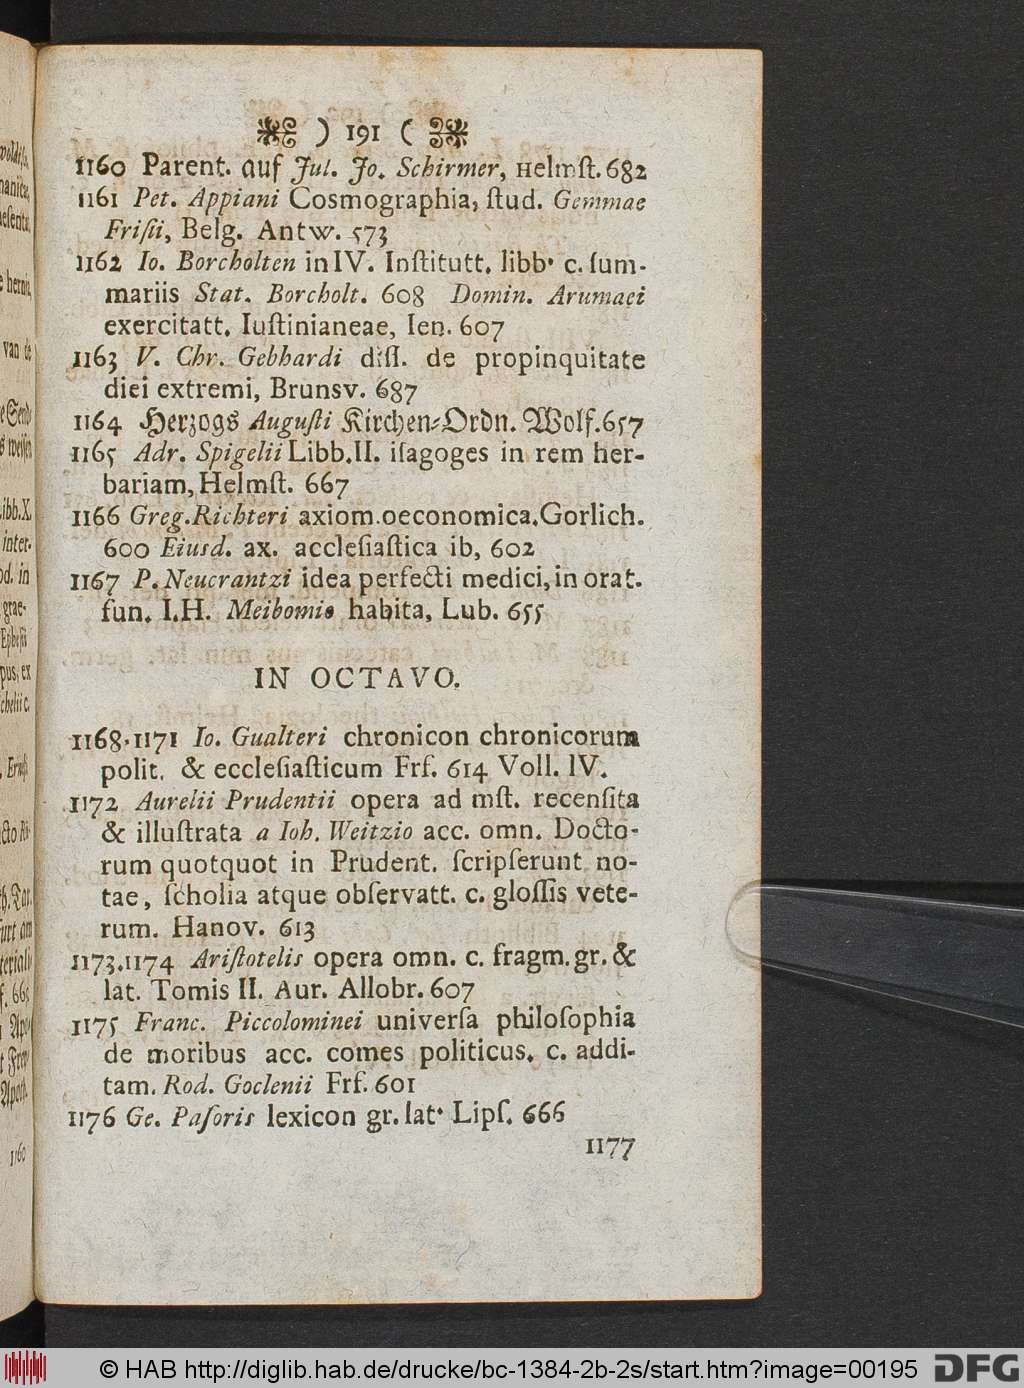 ) 191 (
1160 Parent. auf Jul. Jo. Schirmer, Helmſt. 682
1161 Pet. Appiani Cosmographia, ſtud. Gemmae
Friſii, Belg. Antw. 573
1162 Io. Borcholten in IV. Inſtitutt. libb' c. ſum-
mariis Stat. Borcholt. 608 Domin. Arumaei
exercitatt. Iuſtinianeae, Ien. 607
1163 V. Chr. Gebhardi diſſ. de propinquitate
diei extremi, Brunsv. 687
1164 Herzogs Auguſti Kirchen-Ordn. Wolf. 657
1165 Adr. Spigelii Libb. II. iſagoges in rem her-
bariam, Helmſt. 667
1166 Greg. Richteri axiom. oeconomica. Gorlich.
600 Eiusd. ax. accleſiaſtica ib, 602
1167 P. Neucrantzi idea perfecti medici, in orat.
fun. I. H. Meibomio habita, Lub. 655
IN OCTAVO.
1168.1171 Io. Gualteri chronicon chronicorum
polit. & eccleſiaſticum Frf. 614 Voll. IV.
1172 Aurelii Prudentii opera ad mſt. recenſita
& illuſtrata a Ioh. Weitzio acc. omn. Docto-
rum quotquot in Prudent. ſcripſerunt no-
tae, ſcholia atque obſervatt. c. gloſſis vete-
rum. Hanov. 613
1173.1174 Ariſtotelis opera omn. c. fragm. gr. &
lat. Tomis II. Aur. Allobr. 607
1175 Franc. Piccolominei univerſa philoſophia
de moribus acc. comes politicus. c. addi-
tam. Rod. Goclenii Frf. 601
1176 Ge. Paſoris lexicon gr. lat' Lipſ. 666
1177
© HAB http://diglib.hab.de/drucke/bc-1384-2b-2s/start.htm?image=00195
DFG